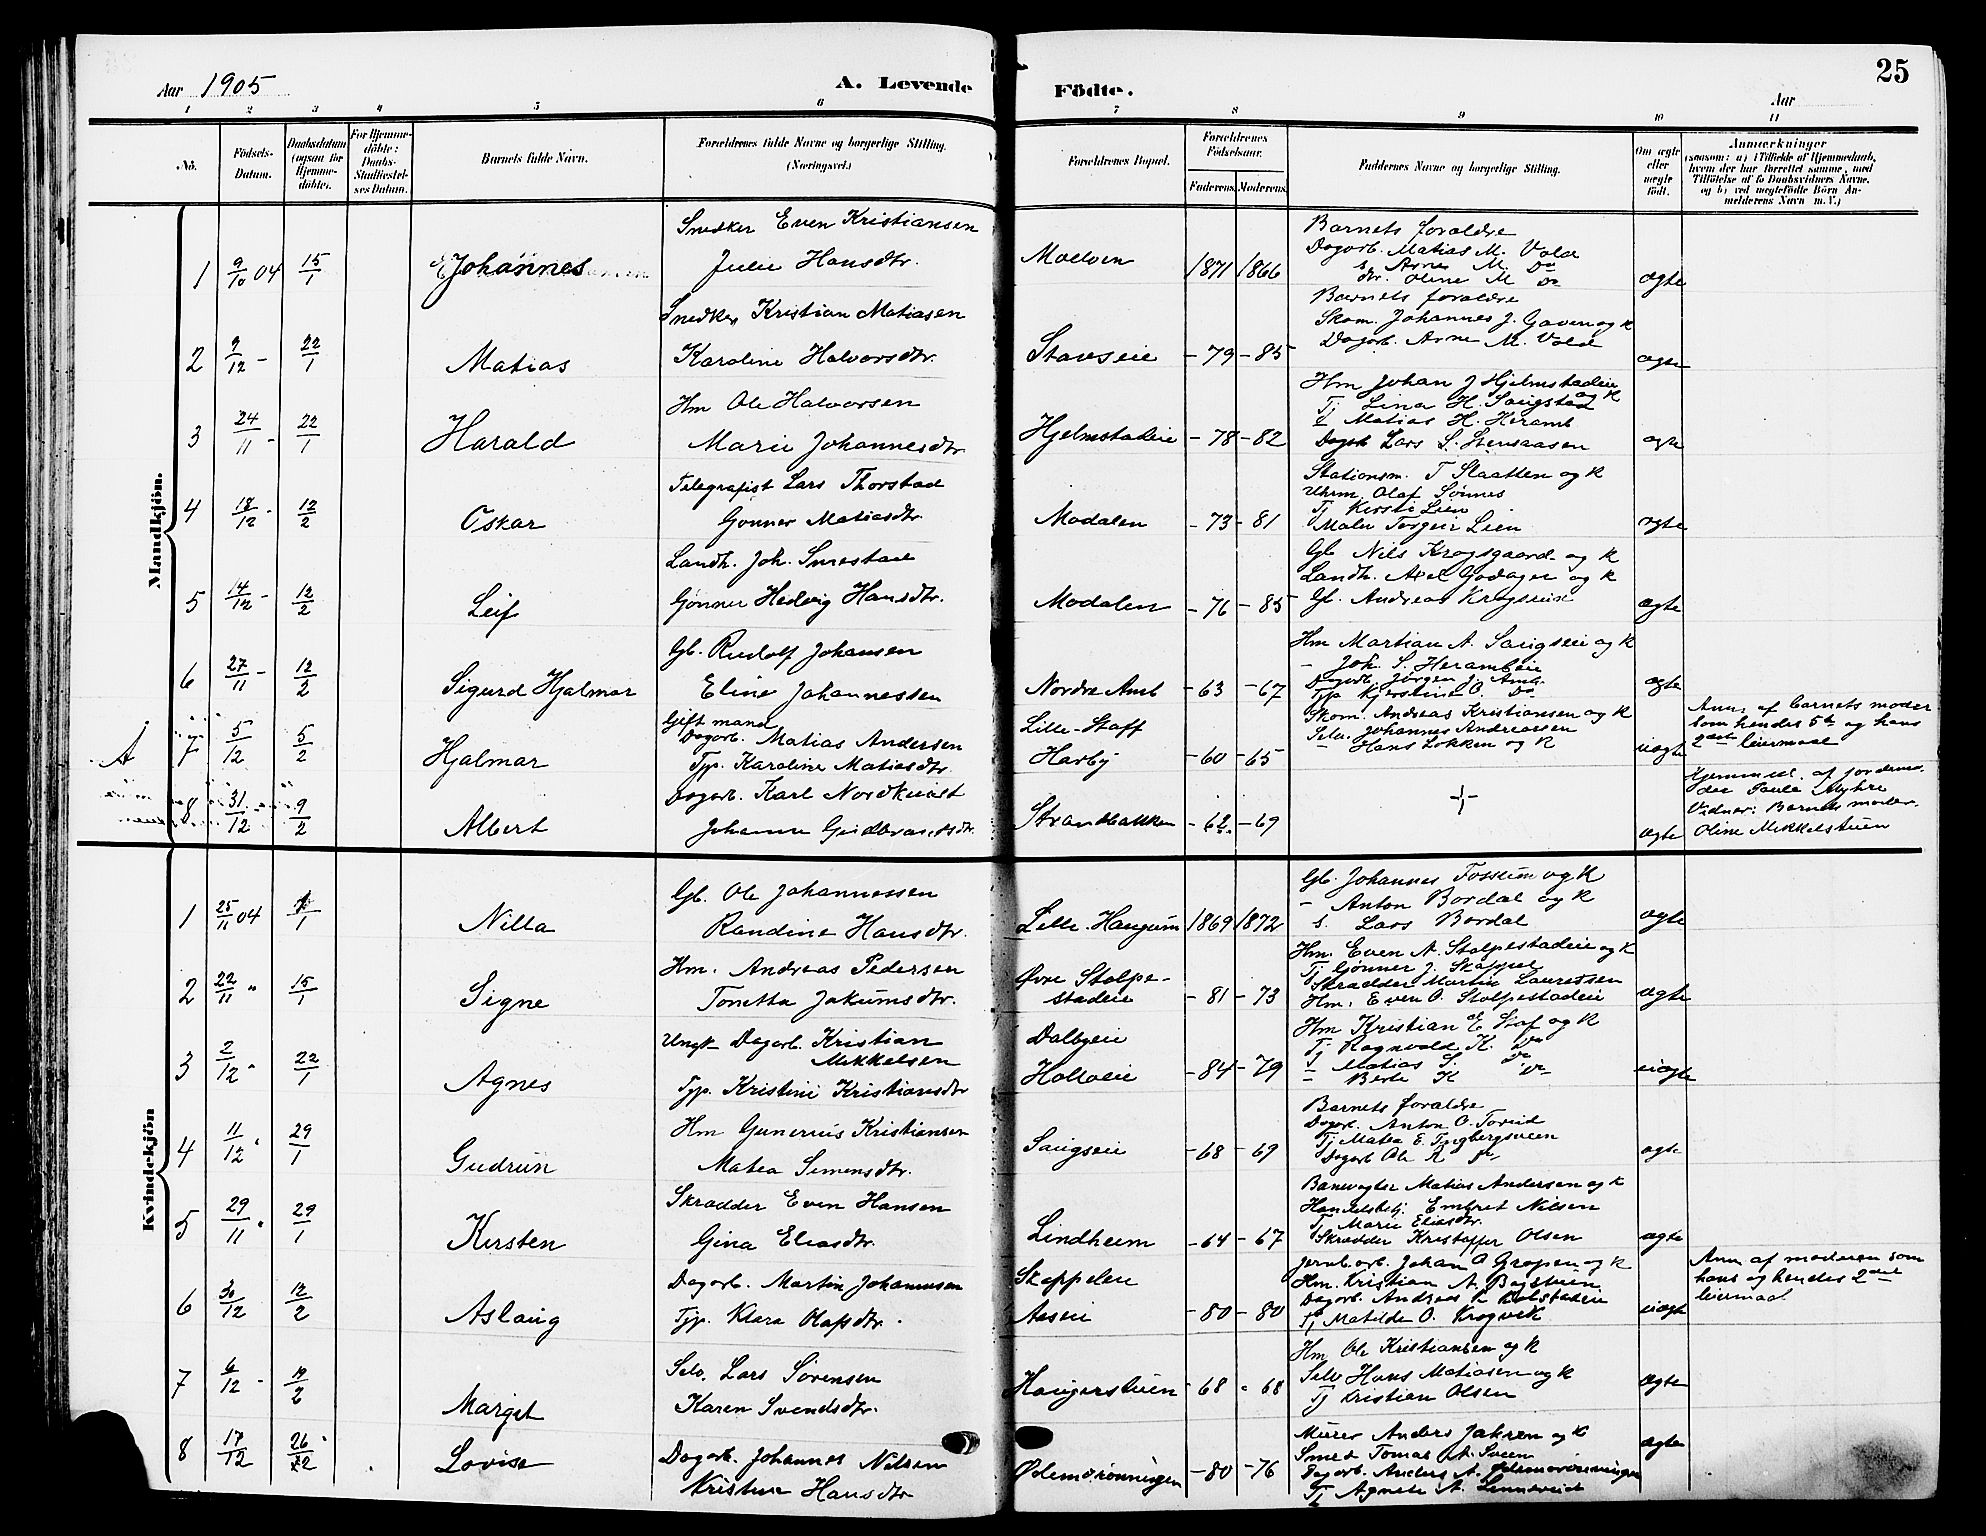 25
Aar 1905
A. Levende Födte.
Aar
1 2 3 4 5 6 7 8 9 10 11
No.
Födsels-Datum.
Daabsdatum (ogsaa for Hjemme-döbte).
For Hjemme-döbte: Daabs-Stadfæstelses Datum.
Barnets fulde Navn.
Forældrenes fulde Navne og borgerlige Stilling. (Næringsvei.)
Forældrenes Bopæl.
Forældrenes Födselsaar.
Faderens. Moderens.
Faddernes Navne og borgerlige Stilling.
Om ægte eller uægte födt.
Anmærkninger (saasom: a) i Tilfælde af Hjemmedaab, hvem der har forrettet samme, med Tilföielse af to Daabsvidners Navne, og b) ved uægtefödte Börn Anmelderens Navn m. V.)
Mandkjön.
Snedker Even Kristiansen
1 9/10 04 15/1 Johannes Julie Hansdtr. Moelven 1871 1866 ægte
Barnets forældre
Dagarb. Matias M. Vold
s. Arne M. Do
dr. Oline M Do
Snedker Kristian Matiasen
2 9/12 - 22/1 Matias Karoline Halvorsdtr. Stavseie - 79 - 85 ægte
Barnets forældre
Skom. Johannes J. Gaven og k
Dagarb. Arne M. Vold
Hm Ole Halvorsen
3 24/11 - 22/1 Harald Marie Johannesdtr Hjelmstadeie - 78 - 82 ægte
Hm Johan J Hjelmstadeie og k
Tj Lina H. Saugstad
" Matias H. Heramb
Dagarb Lars S. Stensaasen
Telegrafist Lars Thorstad
4 18/12 - 12/2 Oskar Gonner Matiasdtr. Modalen - 73 - 81 ægte
Stationsm. T Slaatten og k
Uhrm. Olaf Sønnes
Tj Kersti Lien
Maler Torgeir Lien
Landh. Joh. Smestad
5 14/12 - 12/2 Leif Gønner Hedvig Hansdtr. Modalen - 76 - 85 ægte
Gb Nils Krogsgaard og k
Landh. Axel Godager og k
Gb. Andreas Krogseie
Gb. Rudolf Johansen
6 27/11 - 12/2 Sigurd Hjalmar Eline Johannessen Nordre Amb - 63 - 67 ægte
Hm Martian A. Saugseie og k
- Joh. S. Herambeie
Dagarb. Jørgen J. Amb.
Tjp Kjerstine O. Do
Gift mand
Dagarb. Matias Andersen Lille-Staff
7 5/12 5/2 Hjalmar Tjp. Karoline Matiasdtr. Harby - 60 - 65 uægte
Skom. Andreas Kristiansen og k
Selv. Johannes Andreassen
- Hans Løkken og k
Anm. af barnets moder
som hendes 5te og hans
2det leiermaal
Dagarb. Karl Nordkvist
8 31/12 9/2 Albert Johanne Gudbrandsdtr. Strandbakken - 62. - 69 ægte
Hjemmed. af jordemo-
der Paula Myhre
Vidner: Barnets moder
Oline Mikkelstuen
Kvindekjön
Gb. Ole Johannessen
1 25/11 04 1/1 Nilla Randine Hansdtr. Lille-Haugum 1869 1872 ægte
Gb. Johannes Fossum og k
- Anton Bordal og k
s. Lars Bordal
Hm. Andreas Pedersen Øvre Stolpe-
2 22/11 " 15/1 Signe Tonetta Jakumsdtr. stadeie - 81 - 73 ægte
Hm. Even A. Stolpestadeie og k
Tj Gønner J. Skappel
Skrædder Martin Lauretsen
Hm. Even O. Stolpestadeie
Ungk Dagarb. Kristian Mikkelsen Dalbyeie
3 2/12 " 22/1 Agnes Tjp. Kristine Kristiansdtr Holloeie - 84 - 79 uægte
Hm Kristian E. Staf og k
Tj Ragnvald K. Do
" Matias S. Do
" Berte K Do
Hm Gunerius Kristiansen
4 11/12 " 29/1 Gudrun Matea Simensdtr. Saugseie - 68 - 69 ægte
Barnets forældre
Dagarb. Anton O. Torud
Tj Matea E. Tingbergsveen
Dagarb Ole A Do
Skrædder Even Hansen
5 29/11 " 29/1 Kirsten Gina Eliasdtr. Lindheim - 64 - 67 ægte
Banevogter Matias Andersen og k
Handelsbetj. Embret Nilsen
Tj Marie Eliasdtr.
Skrædder Kristoffer Olsen
Dagarb. Martin Johannesen Skappeleie
6 30/12 12/2 Aslaug Tjp. Klara Olafsdtr. Aaseie - 80 - 80 uægte
Jernb.arb. Johan O Gropen og k
Hm. Kristian A. Bagstuen
Dagarb. Andreas K. Kolstadeie
Tj Matilde O. Krogvik
Anm af moderen som
hans og hendes 2det
leiermaal
Selv. Lars Sørensen
7 6/12 - 19/2 Margit Karen Svendsdtr. Haugerstuen - 68 - 68 ægte
Hm Ole Kristiansen og k
Selv Hans Matiasen og k
Tj Kristian Olsen
Dagarb. Johannes Nilsen
8 17/12 26/2 Lovise Kristine Hansdtr Ødemørønningen - 80 - 76 ægte
Murer Anders Jahren og k
Smed Tomas A. Sveen
Dagarb. Anders A.
Tj Agnete A. Linnerud